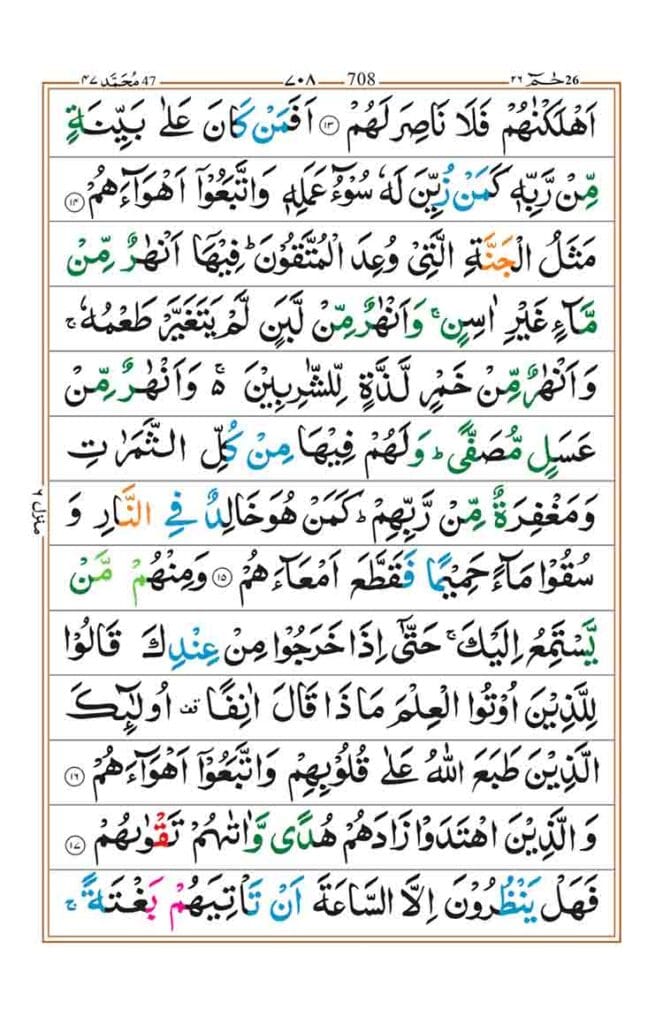 حٰمٓ 26 ٢٦ 708 ٧٠٨ 47 مُحَمَّد ٤٧
اَهْلَكْنٰهُمْ فَلَا نَاصِرَ لَهُمْ ۝١٣ اَفَمَنْ كَانَ عَلٰى بَيِّنَةٍ
مِّنْ رَّبِّهٖ كَمَنْ زُيِّنَ لَهٗ سُوْٓءُ عَمَلِهٖ وَاتَّبَعُوْۤا اَهْوَآءَهُمْ ۝١٤
مَثَلُ الْجَنَّةِ الَّتِىْ وُعِدَ الْمُتَّقُوْنَ ؕ فِيْهَاۤ اَنْهٰرٌ مِّنْ
مَّآءٍ غَيْرِ اٰسِنٍ ۚ وَاَنْهٰرٌ مِّنْ لَّبَنٍ لَّمْ يَتَغَيَّرْ طَعْمُهٗ ۚ
وَاَنْهٰرٌ مِّنْ خَمْرٍ لَّذَّةٍ لِّلشّٰرِبِيْنَ ۚ۬ وَاَنْهٰرٌ مِّنْ
عَسَلٍ مُّصَفًّى ؕ وَلَهُمْ فِيْهَا مِنْ كُلِّ الثَّمَرٰتِ
وَمَغْفِرَةٌ مِّنْ رَّبِّهِمْ ؕ كَمَنْ هُوَ خَالِدٌ فِى النَّارِ وَ
سُقُوْا مَآءً حَمِيْمًا فَقَطَّعَ اَمْعَآءَهُمْ ۝١٥ وَمِنْهُمْ مَّنْ
يَّسْتَمِعُ اِلَيْكَ ۚ حَتّٰٓى اِذَا خَرَجُوْا مِنْ عِنْدِكَ قَالُوْا
لِلَّذِيْنَ اُوْتُوا الْعِلْمَ مَاذَا قَالَ اٰنِفًا ۫ اُولٰٓئِكَ
الَّذِيْنَ طَبَعَ اللّٰهُ عَلٰى قُلُوْبِهِمْ وَاتَّبَعُوْۤا اَهْوَآءَهُمْ ۝١٦
وَالَّذِيْنَ اهْتَدَوْا زَادَهُمْ هُدًى وَّاٰتٰىهُمْ تَقْوٰىهُمْ ۝١٧
فَهَلْ يَنْظُرُوْنَ اِلَّا السَّاعَةَ اَنْ تَاْتِيَهُمْ بَغْتَةً ۚ
منزل ٦